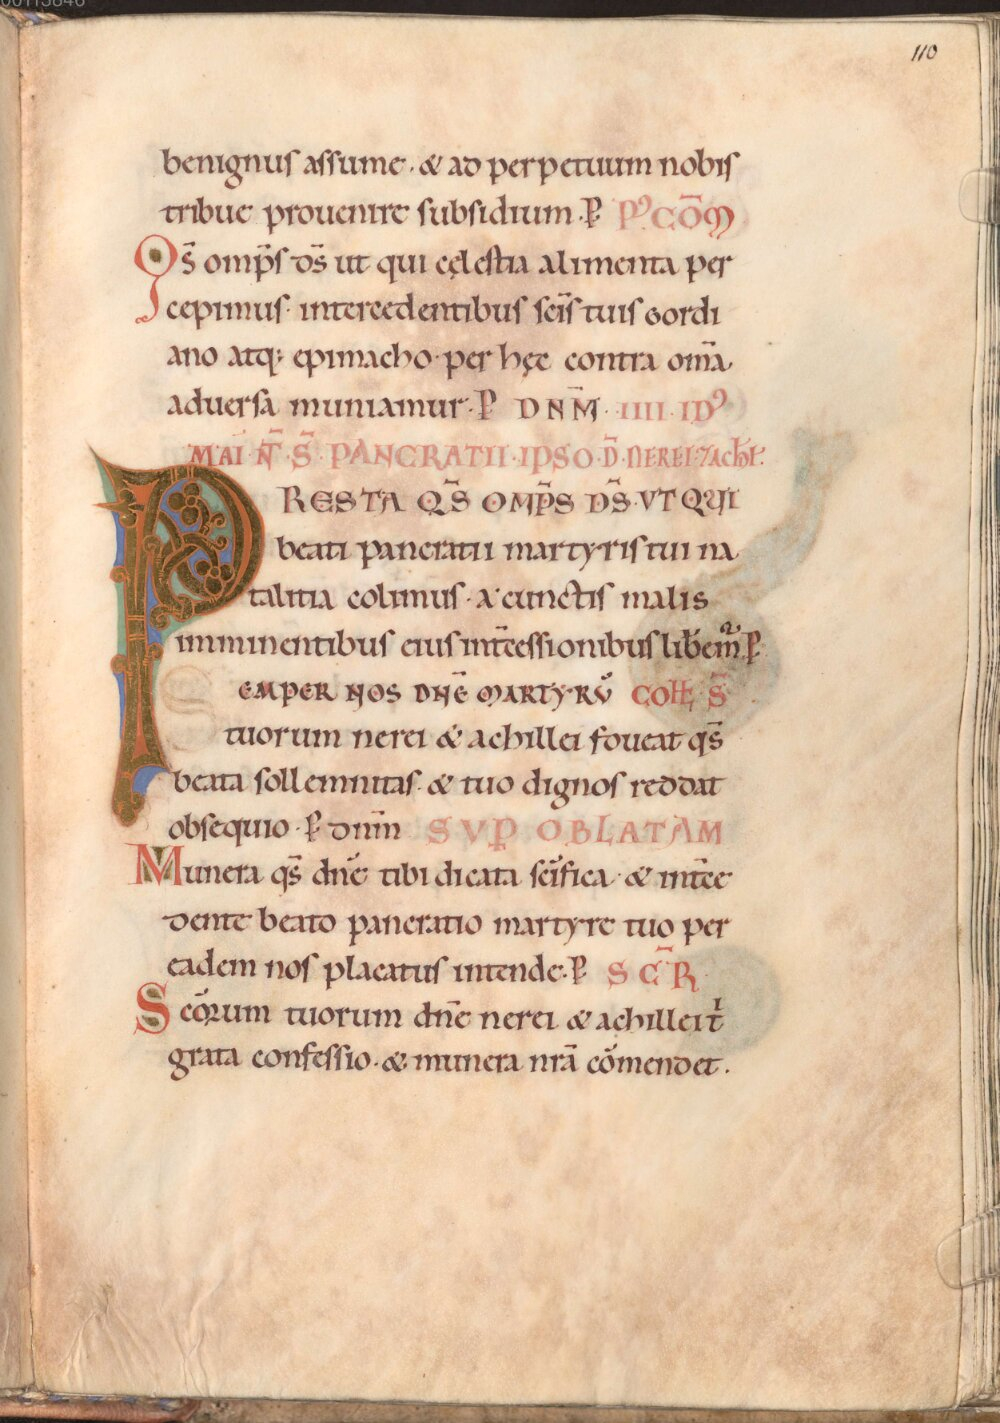 00113846
110
benignus assume · & ad perpetuum nobis
tribue prouenire subsidium · P̄ P᾽ CŌM
QS̄ omp̄s ds̄ ut qui cęlestia alimenta per
cepimus · intercedentibus scīs tuis Gordi
ano atq; epimacho · per hęc contra om̄a
aduersa muniamur · P̄ DNM̄ · IIII · ID᾽
MAI · N̄ · S̄ · PANCRATII · IPSO · D̄ · NEREI · ⁊ ACħI·
PRESTA QS̄ OMP̄S DS̄ · VT QUI
beati pancratii martyris tui na
talitia colimus · a cunctis malis
imminentibus eius int̄cessionibus liberem᷒ · P̄
SEMPER NOS DNĒ MARTYRŪ COLL̄ S̄
tuorum nerei & achillei foueat qs̄
beata sollemnitas · & tuo dignos reddat
obsequio · P̄ dnm̄ SUP OBLATAM
Munera qs̄ dnē tibi dicata scīfica · & int̄ce
dente beato pancratio martyre tuo per
eadem nos placatus intende · P̄ S C̄ R
Scōrum tuorum dnē nerei & achillei t̄ⁱ
grata confessio · & munera nrā cōmendet ·